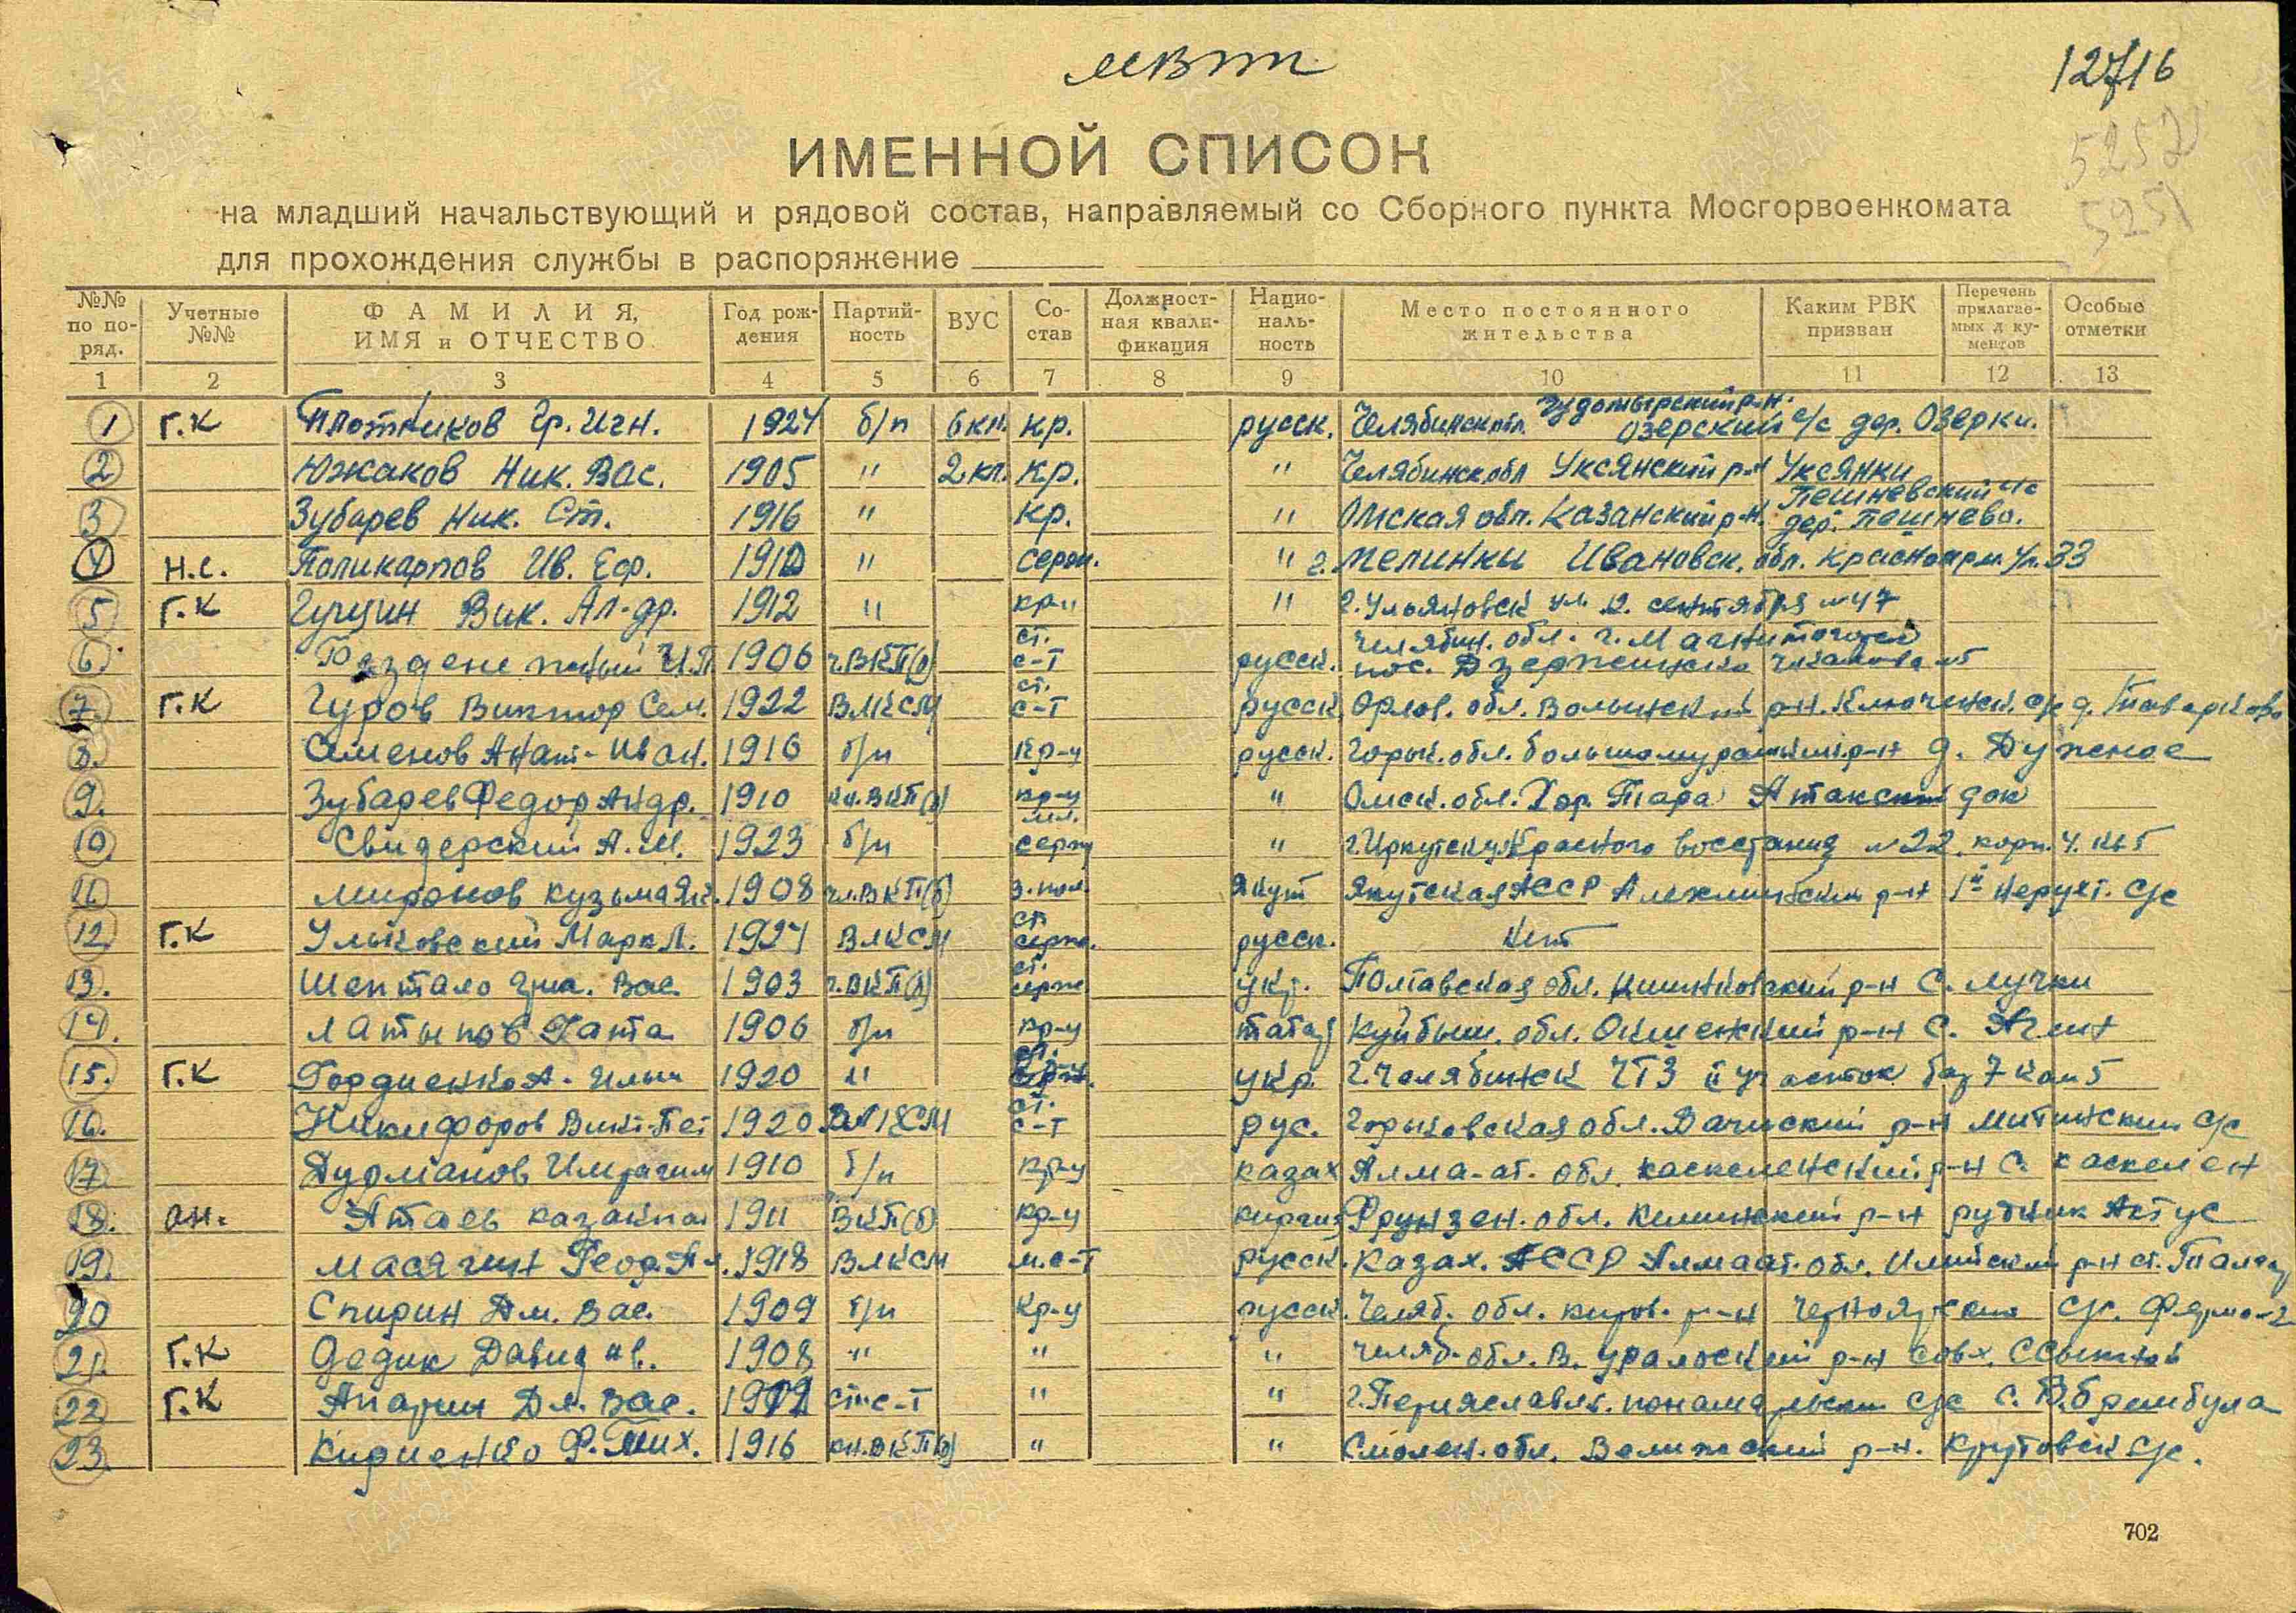 мвпп
12716
5252
5251
ИМЕННОЙ СПИСОК
на младший начальствующий и рядовой состав, направляемый со Сборного пункта Мосгорвоенкомата
для прохождения службы в распоряжение
№№ по по- ряд. Учетные №№ ФАМИЛИЯ, ИМЯ и ОТЧЕСТВО Год рож- дения Партий- ность ВУС Со- став Должност- ная квали- фикация Нацио- наль- ность Место постоянного жительства Каким РВК призван Перечень прилагае- мых д ку- ментов Особые отметки
1 2 3 4 5 6 7 8 9 10 11 12 13
1 Г.К Плотников Гр. Игн. 1924 б/п 6 кл. кр. русск. Челябинск обл. Озерский с/с дер. Озерки.
2 Южаков Ник. Вас. 1905 " 2 кл. кр. " Челябинск обл Уксянский р-н Уксянки
3 Зубарев Ник. Ст. 1916 " кр. " Омская обл. Казанский р-н. Пешневский с/с дер. Пешнево.
4 Н.С. Поликарпов Ив. Ефр. 1910 " серж. " г. Меленки Ивановск. обл. Красноарм. ул. 33
5 Г.К Гущин Вик. Ал-др. 1912 " кр-ц " г. Ульяновск ул 12 сентября №47
6. И.П 1906 ч.ВКП(б) ст. с-т русск. Челябин. обл. г. Магнитогорск пос. Дзержинского Чкалова №5
7. Г.К Гуров Виктор Сем. 1922 ВЛКСМ ст. с-т русск Орлов. обл. р-н. с/с д.
8. Семенов Анат. Иван. 1916 б/п кр-ц русск. Горьк. обл. р-н д.
9. Зубарев Федор Андр. 1910 кн.ВКП(б) кр-ц " Омск. обл. гор. Тара
10 Свидерский А.М. 1923 б/п мл. серж " г. Иркутск ул Красного восстания №22 корп. 4. кв 5
11 Миронов Кузьма Як. 1908 чл.ВКП(б) з.пол. якут Якутская АССР р-н 1й Нерукт. с/с
12 Г.К Марк Л. 1924 ВЛКСМ ст серж. русск. Нет
13. Шептало Вас. 1903 ч.ВКП(б) ст. серж укр. Полтавская обл. Кишинковский р-н с. Лучки
14. Латыпов Гата 1906 б/п кр-ц татар Куйбыш. обл. р-н с.
15. Г.К Гордиенко А. Ильич 1920 " ст. серж. укр. г. Челябинск ЧТЗ II участок бар 7 ком 5
16. Никифоров Викт. Пет 1920 ВЛКСМ ст. с-т рус. Горьковская обл. Вачский р-н Митинский с/с
17. Дурманов 1910 б/п кр-ц казах Алма-ат. обл. Каскеленский р-н с. Каскелен
18. он. Атаев 1911 ВКП(б) кр-ц киргиз Фрунзен. обл. Кеминский р-н рудник Актус
19. Масягин Геор. 1918 ВЛКСМ м.с-т русск. Казах. АССР Алмаат. обл. Илийский р-н ст.
20 Спирин Дм. Вас. 1909 б/п кр-ц русск. Челяб. обл. киров. р-н с/с. Ферма-2
21. Г.К Дедик Давид Ив. 1908 " " " Челяб. обл. В. Уральский р-н совх.
22 Г.К Апарин Дм. Вас. ст с-т " " г. Переяславль. с/с с. В. Брембула
23. Кириенко Ф. Мих. 1916 кн.ВКП(б) " " Смолен. обл. Велижский р-н. Крутовск с/с.
702